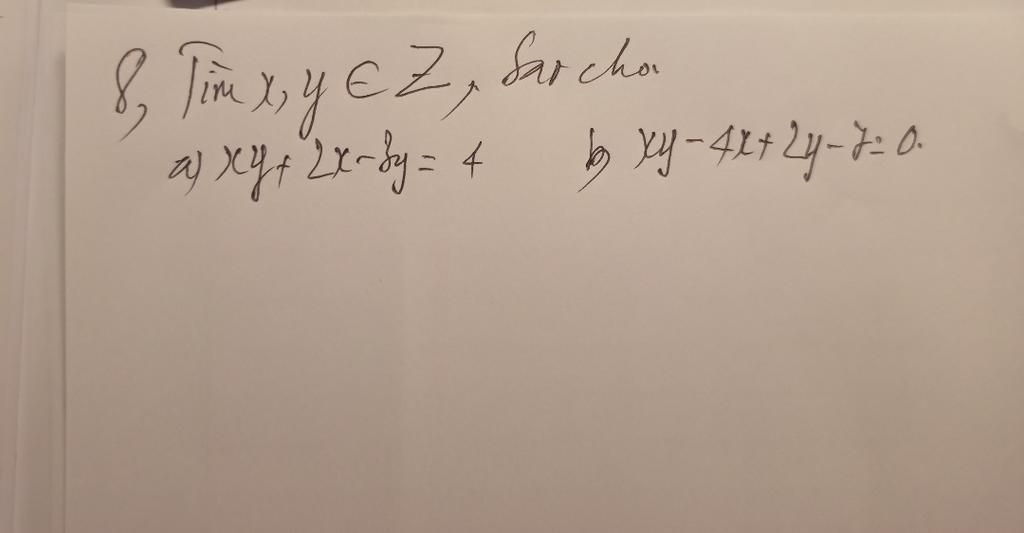 8, Tìm x, y ∈ Z, sao cho
a) xy + 2x - 3y = 4 b) xy - 4x + 2y - 7 = 0.